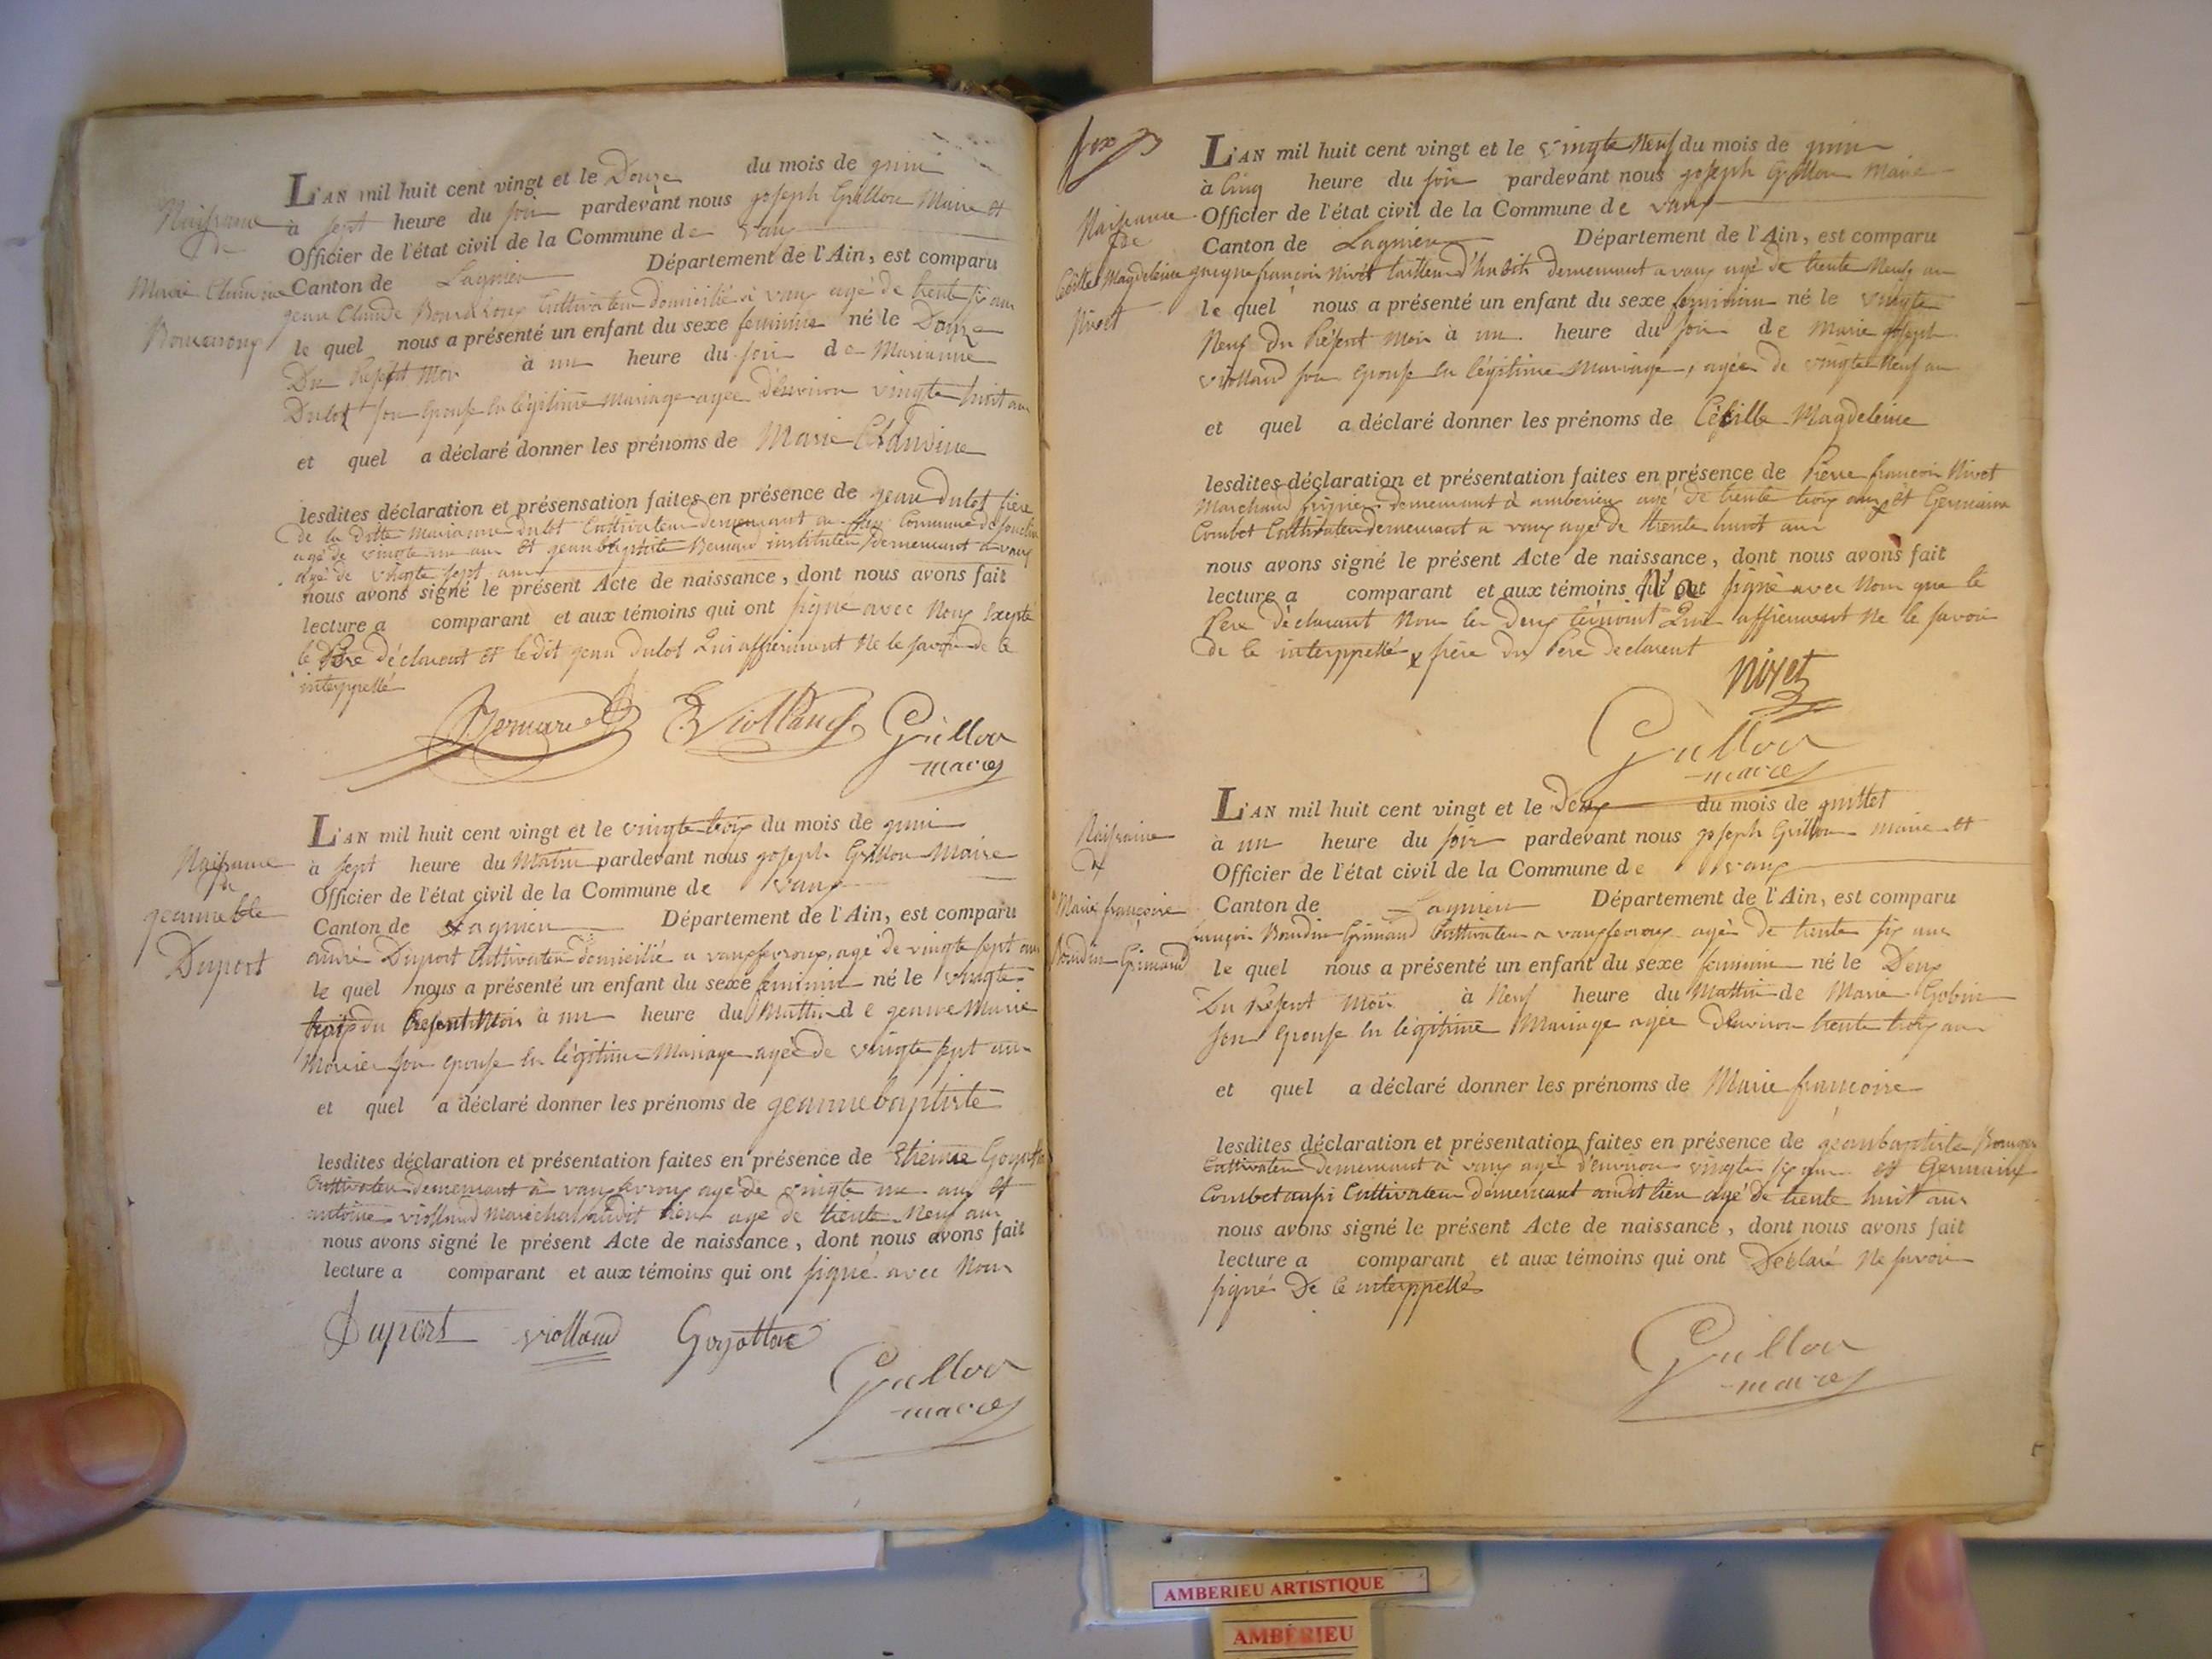 Naissance
de
Marie Claudine
L'AN mil huit cent vingt et le Douze du mois de juin
à sept heure du soir pardevant nous joseph Grillon Maire et
Officier de l'état civil de la Commune de vaux
Canton de Lagnieu Département de l'Ain, est comparu
jean Claude cultivateur domicilié à vaux agé de trente six ans
le quel nous a présenté un enfant du sexe feminine né le Douze
Du Présent Mois à un heure du soir de Marianne
Dulot son Epouse en légitime Mariage agée d'environ vingte huit ans
et quel a déclaré donner les prénoms de Marie Claudine
lesdites déclaration et présensation faites en présence de jean Dulot frère
de la ditte Marianne Dulot Cultivateur demeurant au Commune de
agé de vingte un ans et jean baptiste Bernard instituteur demeurant a vaux
agé de vingte sept ans
nous avons signé le présent Acte de naissance, dont nous avons fait
lecture a comparant et aux témoins qui ont signé avec Nous Excepté
le Père déclarent et ledit jean Dulot Qui affirment Ne le savoir de ce
interppellé
Bernard Violland Grillon
maire
Naissance
de
jeanne bte
Duport
L'AN mil huit cent vingt et le vingte trois du mois de juin
à sept heure du Matin pardevant nous joseph Grillon Maire
Officier de l'état civil de la Commune de vaux
Canton de Lagnieu Département de l'Ain, est comparu
andré Duport Cultivateur domicilié a vauxfevroux, agé de vingte sept ans
le quel nous a présenté un enfant du sexe feminin né le vingte
trois du Present Mois à un heure du Mattin de jeanne Marie
son epouse en légitime Mariage agée de vingte sept ans
et quel a déclaré donner les prénoms de jeanne baptiste
lesdites déclaration et présentation faites en présence de Etienne
Cultivateur demeurant à vauxfevroux agé de vingte un ans et
antoine violland marechal audit lieu agé de trente Neuf ans
nous avons signé le présent Acte de naissance, dont nous avons fait
lecture a comparant et aux témoins qui ont signé avec Nous
Duport violland
Grillon
maire
Naissance
de
Cécille Magdeleine
Nivet
L'AN mil huit cent vingt et le vingte Neuf du mois de juin
à Cinq heure du soir pardevant nous joseph Grillon Maire
Officier de l'état civil de la Commune de vaux
Canton de Lagnieu Département de l'Ain, est comparu
françois Nivet tailleur d'habits demeurant a vaux agé de trente Neuf ans
le quel nous a présenté un enfant du sexe feminin né le vingte
Neuf Du Présent Mois à un heure du soir de Marie joseph
violland son epouse en légitime Mariage, agée de vingte Neuf ans
et quel a déclaré donner les prénoms de Cécille Magdeleine
lesdites déclaration et présentation faites en présence de Pierre françois Nivet
Marchand demeurant à amberieux agé de trente trois ans x et Germain
Combet Cultivateur demeurant a vaux agé de trente huit ans
nous avons signé le présent Acte de naissance, dont nous avons fait
lecture a comparant et aux témoins signé avec Nous que le
Père déclarant Non les Deux témoins Qui affirment Ne le savoir
de ce interppellé x frère Du Père declarent
Nivet
Grillon
maire
Naissance
de
Marie françoise
Boudin Grimaud
L'AN mil huit cent vingt et le Deux du mois de juillet
à un heure du soir pardevant nous joseph Grillon maire et
Officier de l'état civil de la Commune de vaux
Canton de Lagnieu Département de l'Ain, est comparu
françois Boudin Grimaud Cultivateur a vauxfevroux agé de trente six ans
le quel nous a présenté un enfant du sexe feminin né le Deux
Du Présent Mois à Neuf heure du Mattin de Marie Gobin
son Epouse en légitime Mariage agée D'environ trente trois ans
et quel a déclaré donner les prénoms de Marie francoise
lesdites déclaration et présentation faites en présence de jeanbaptiste
Cultivateur demeurant à vaux agé d'environ vingte six ans et Germain
Combet aussi Cultivateur demeurant audit lieu agé de trente huit ans
nous avons signé le présent Acte de naissance, dont nous avons fait
lecture a comparant et aux témoins qui ont Déclaré Ne savoir
signés De ce interppellés
Grillon
maire
AMBERIEU ARTISTIQUE
AMBÉRIEU